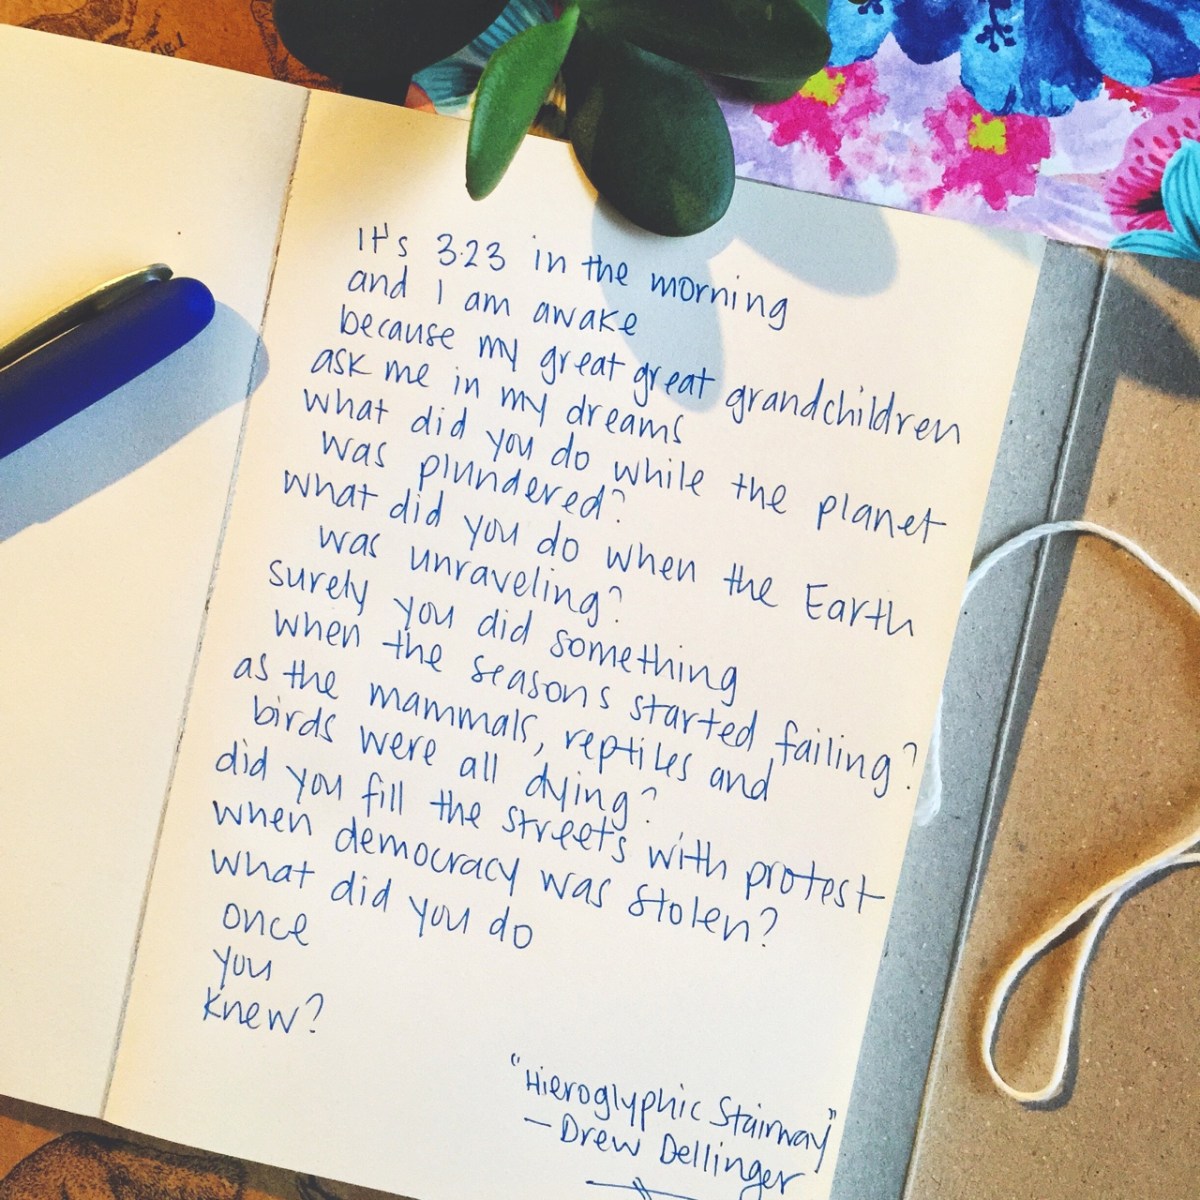 It's 3.23 in the morning
and I am awake
because my great great grandchildren
ask me in my dreams
what did you do while the planet
was plundered?
what did you do when the Earth
was unraveling?
surely you did something
when the seasons started failing?
as the mammals, reptiles and
birds were all dying?
did you fill the streets with protest
when democracy was stolen?
what did you do
once
you
knew?
"Hieroglyphic Stairway"
— Drew Dellinger